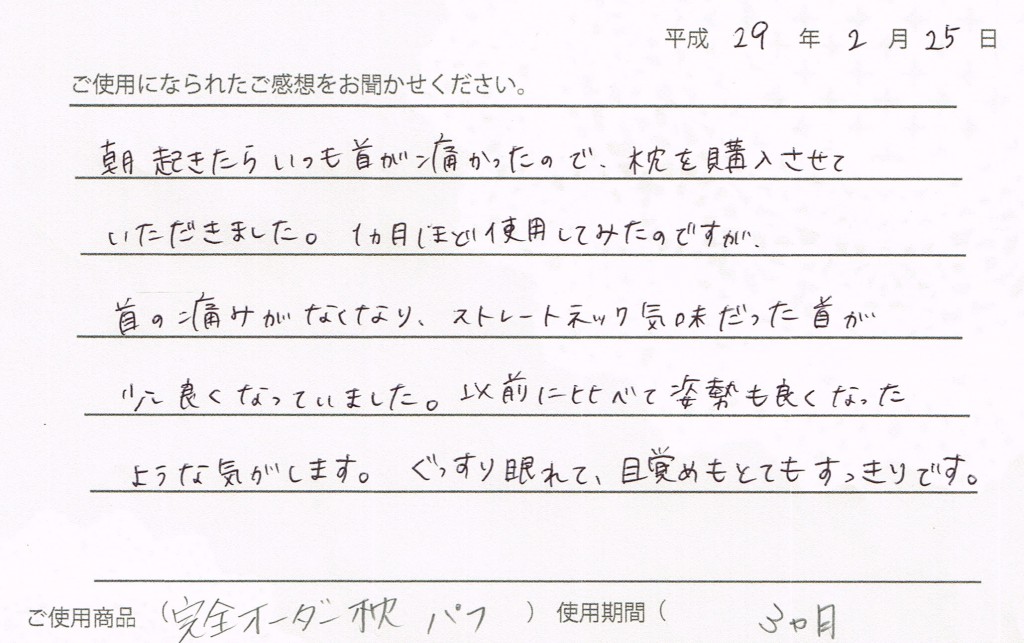 平成 29 年 2 月 25 日
ご使用になられたご感想をお聞かせください。
朝起きたらいつも首が痛かったので、枕を購入させて
いただきました。 1ヵ月ほど使用してみたのですが、
首の痛みがなくなり、ストレートネック気味だった首が
少し良くなっていました。以前に比べて姿勢も良くなった
ような気がします。 ぐっすり眠れて、目覚めもとてもすっきりです。
ご使用商品 (完全オーダー枕 パフ ) 使用期間 ( 3ヵ月